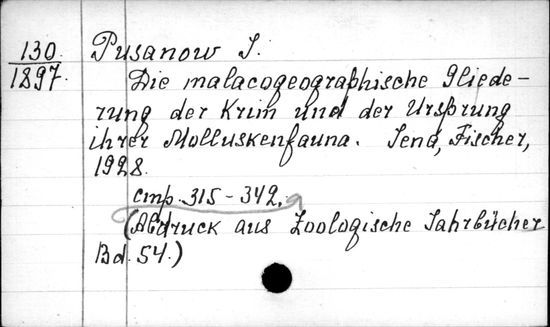 130.
1897.
Pusanow I.
Die malacogeographische Gliede-
rung der Krim und der Ursprung
ihrer Molluskenfauna. Jena, Fischer,
1928.
стр. 315-342.
(Abdruck aus Zoologische Jahrbücher
Bd. 54.)